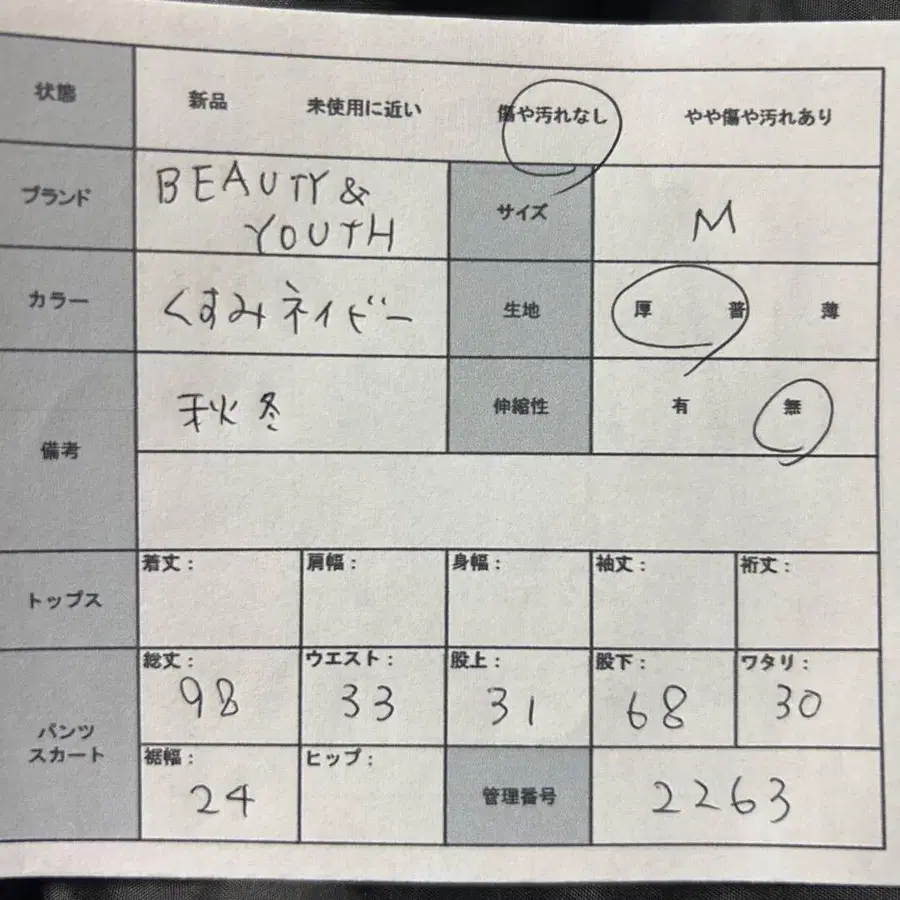 状態 新品 未使用に近い 傷や汚れなし やや傷や汚れあり
ブランド BEAUTY & サイズ M
YOUTH
カラー くすみネイビー 生地 厚 普 薄
備考 秋冬 伸縮性 有 無
トップス 着丈: 肩幅: 身幅: 袖丈: 裄丈:
パンツ
スカート
総丈: ウエスト: 股上: 股下: ワタリ:
98 33 31 68 30
裾幅: ヒップ: 管理番号 2263
24